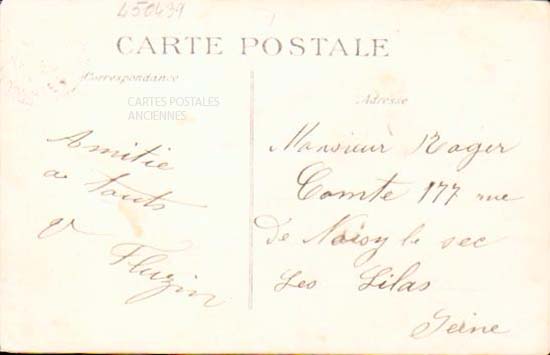 450439
CARTE POSTALE
Correspondance
CARTES POSTALES
ANCIENNES
Adresse
Amitie
a touts
V Fluzin
Monsieur Roger
Comte 177 rue
De Noisy le sec
Les Lilas
Seine